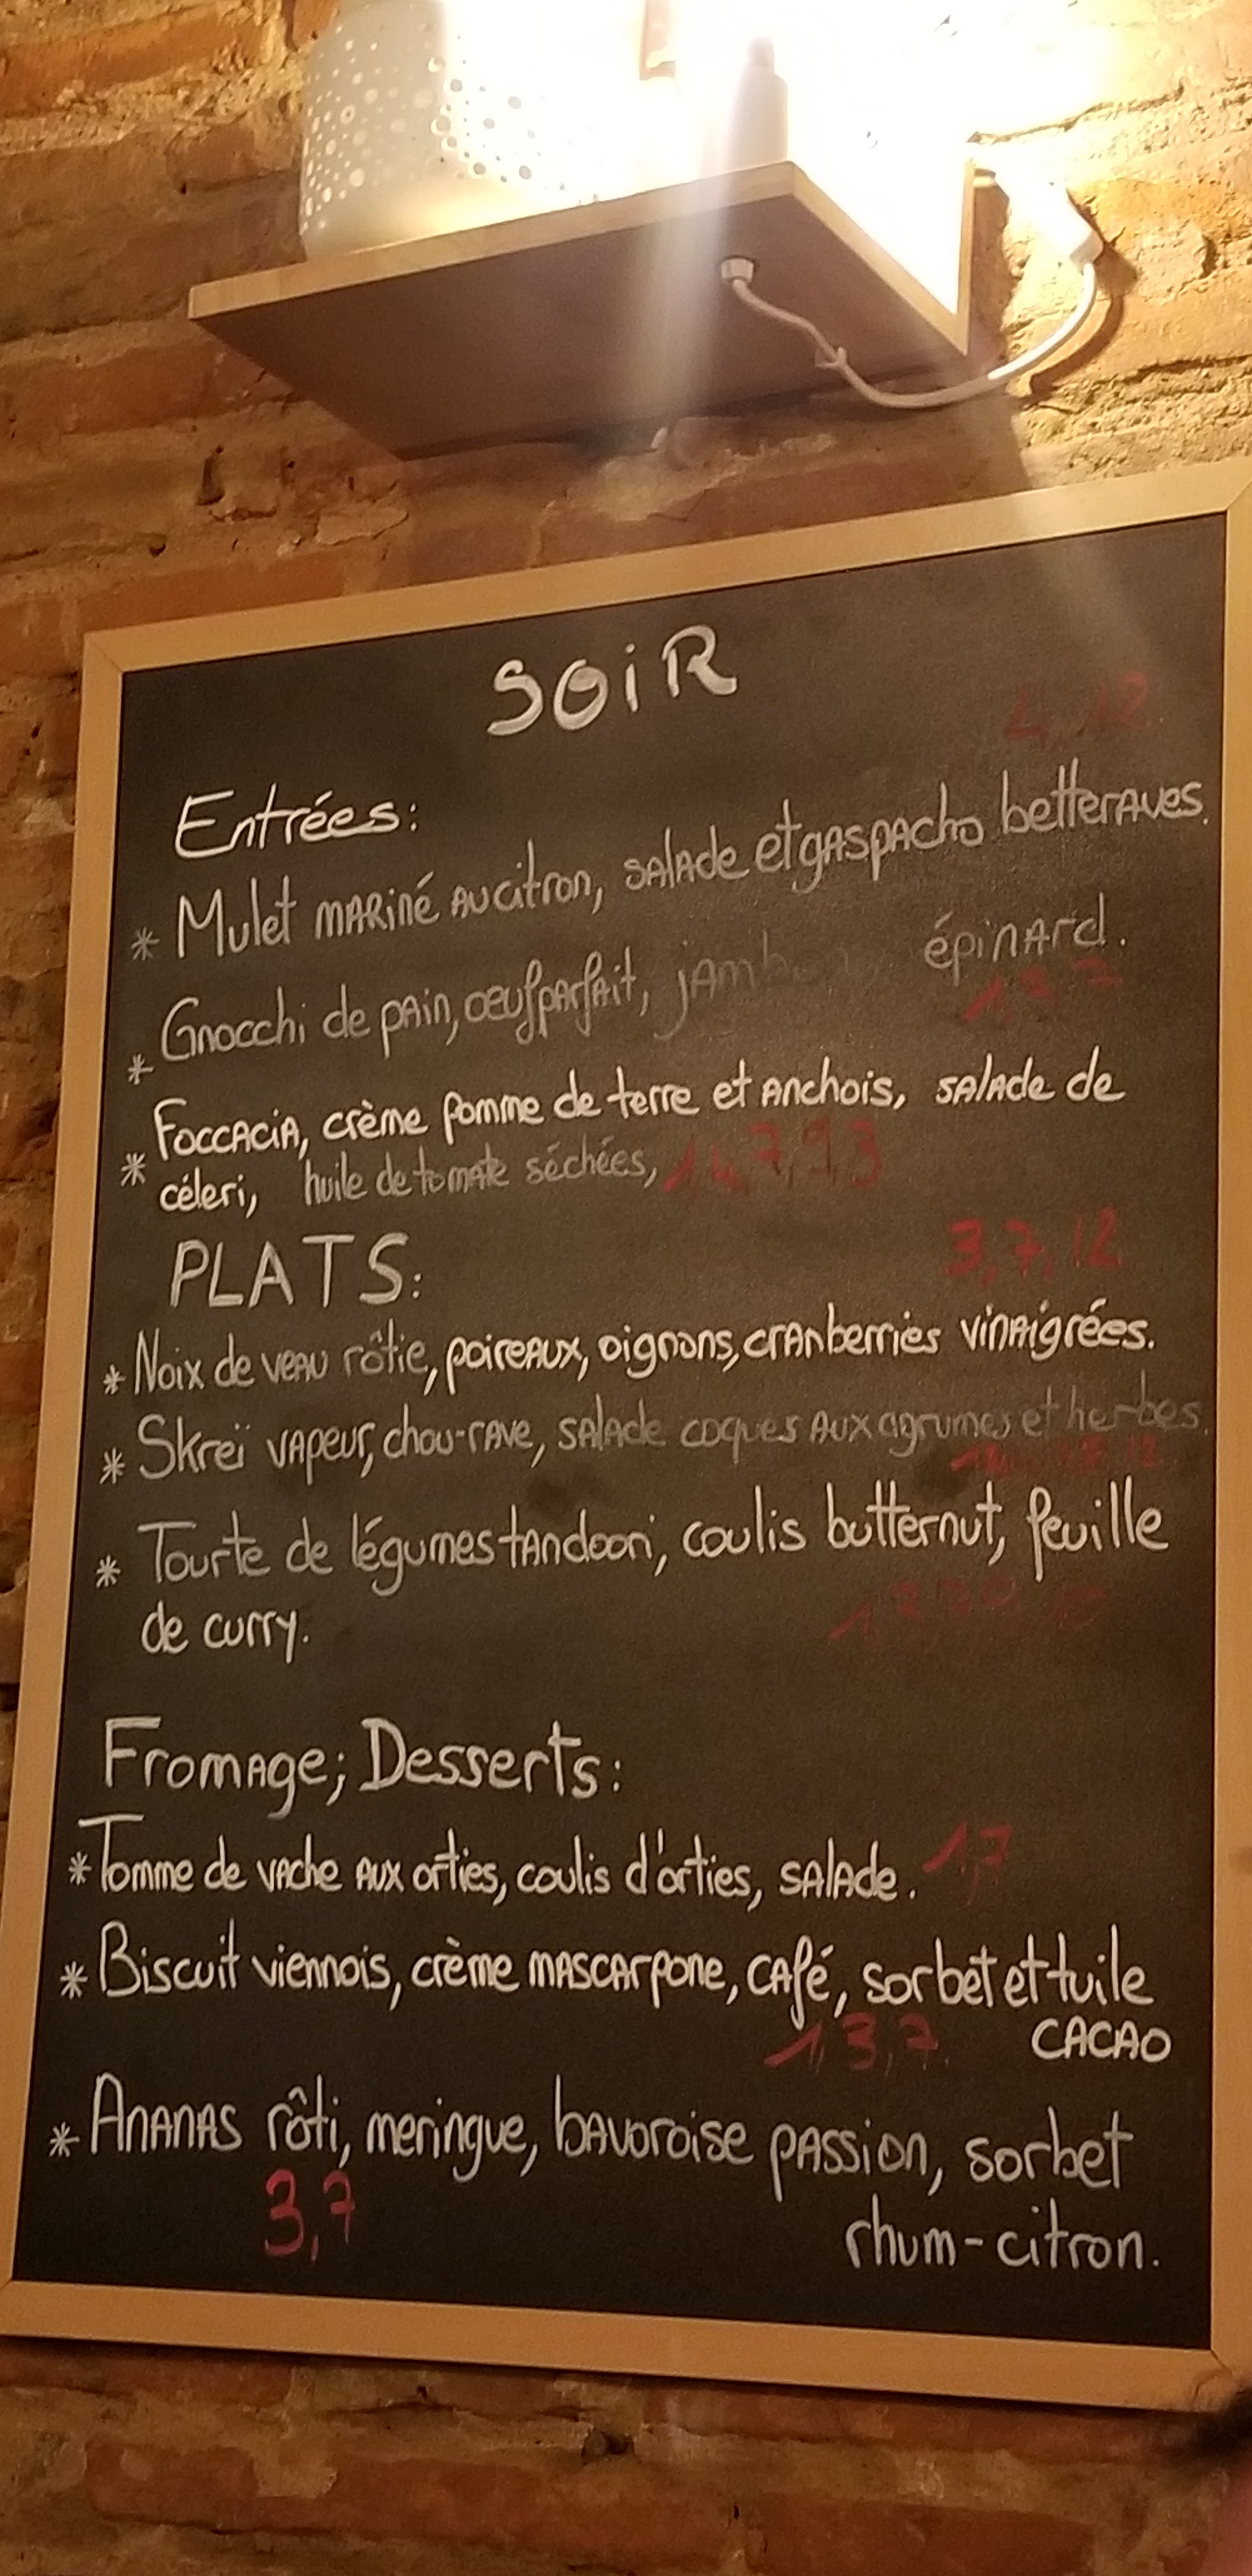 SOIR
4, 12
Entrées:
* Mulet mariné au citron, salade et gaspacho betteraves.
* Gnocchi de pain, oeuf parfait, jambon, épinard.
* Foccacia, crème pomme de terre et anchois, salade de
céleri, huile de tomate séchées,
3, 7, 12
PLATS:
* Noix de veau rôtie, poireaux, oignons, cranberries vinaigrées.
* Skreï vapeur, chou-rave, salade coques aux agrumes et herbes.
* Tourte de légumes tandoori, coulis butternut, feuille
de curry.
Fromage; Desserts:
* Tomme de vache aux orties, coulis d'orties, salade. 1,7
* Biscuit viennois, crème mascarpone, café, sorbet et tuile
1,3,7. CACAO
* Ananas rôti, meringue, bavoroise passion, sorbet
3,7 rhum-citron.